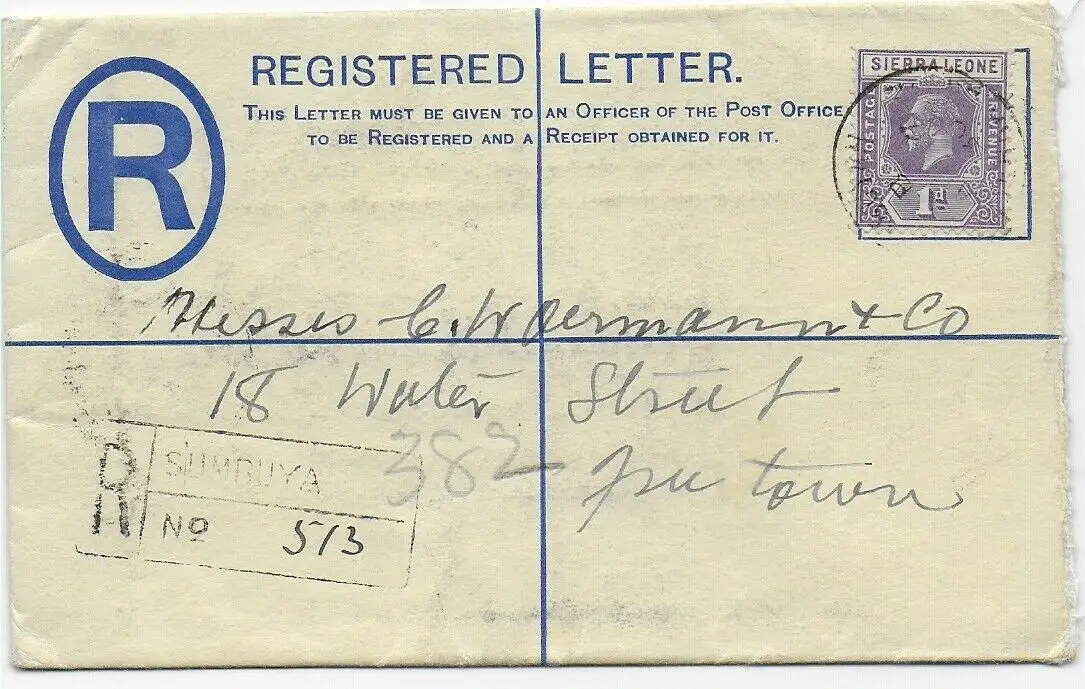 R
REGISTERED LETTER.
THIS LETTER MUST BE GIVEN TO AN OFFICER OF THE POST OFFICE
TO BE REGISTERED AND A RECEIPT OBTAINED FOR IT.
SIERRA LEONE
POSTAGE
REVENUE
1d
Messrs C. Woermann & Co
18 Water Street
382
Free town
R
SUMBUYA
No 513